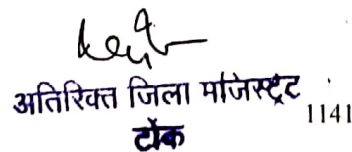 अतिरिक्त जिला मजिस्ट्रेट
1141
टोंक